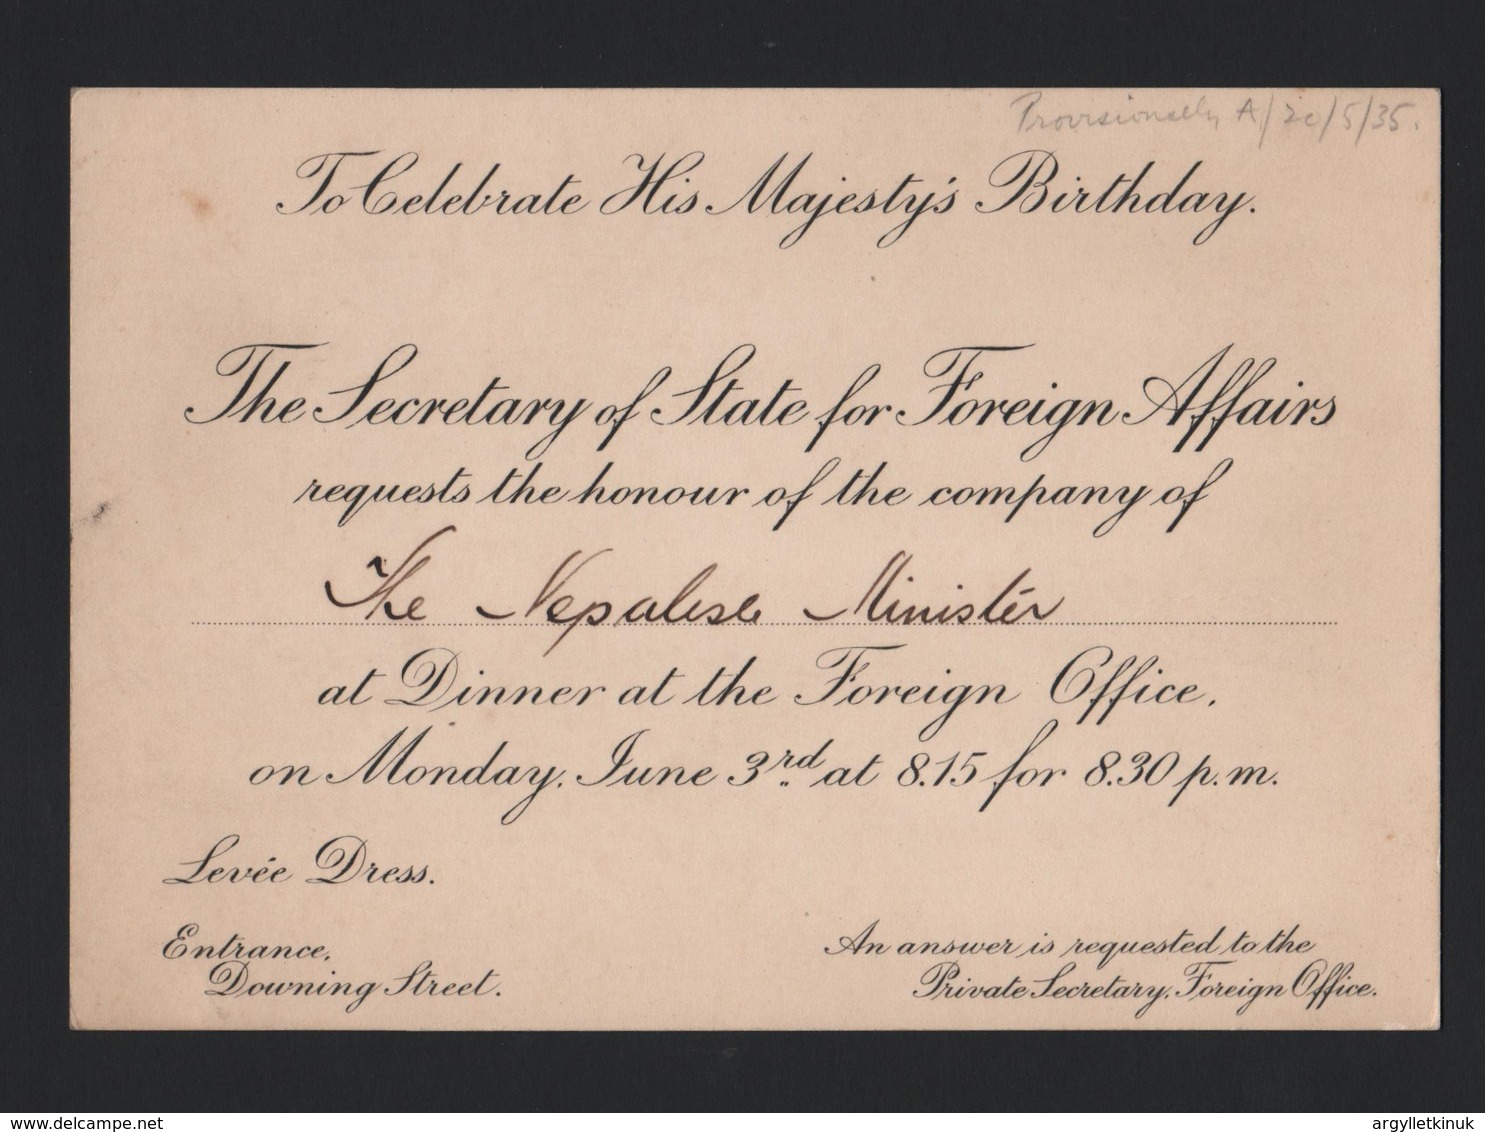 Provisionally A/20/5/35.
To Celebrate His Majesty's Birthday.
The Secretary of State for Foreign Affairs
requests the honour of the company of
The Nepalese Minister
at Dinner at the Foreign Office,
on Monday, June 3rd at 8.15 for 8.30 p.m.
Levée Dress.
Entrance,
Downing Street.
An answer is requested to the
Private Secretary, Foreign Office.
delcampe.net
argylletkinuk